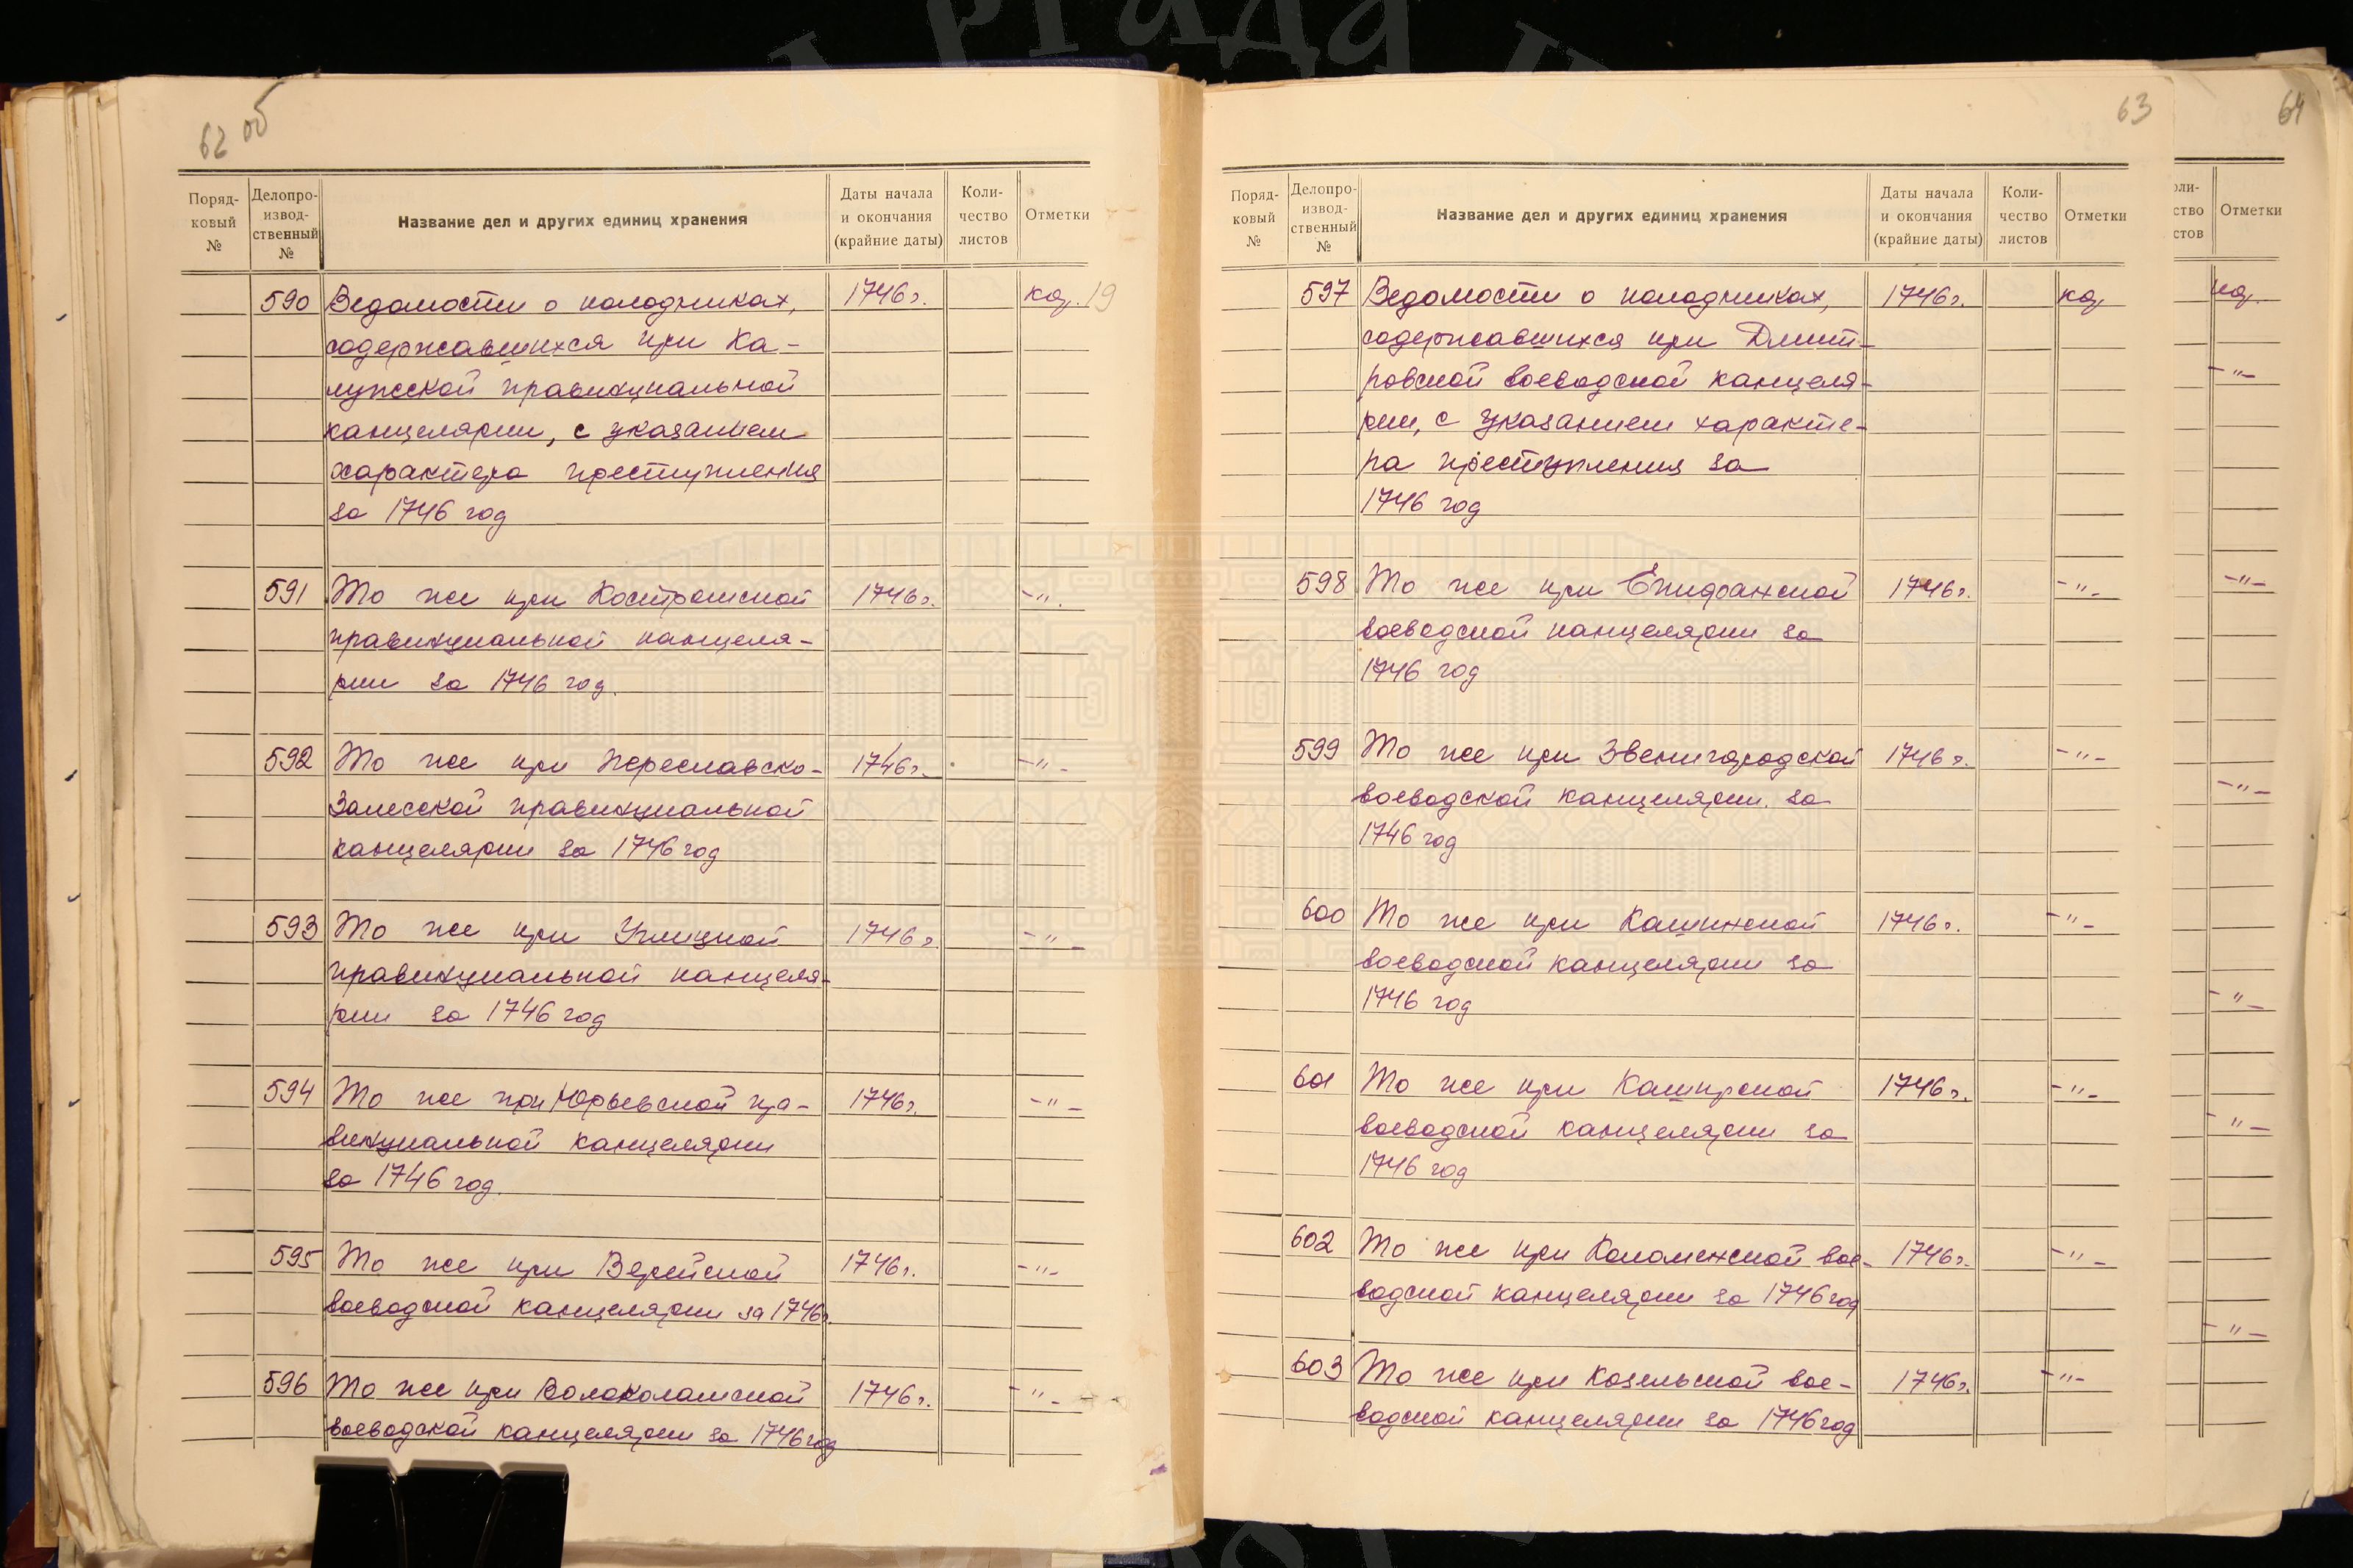 62 об
Поряд-
ковый
№
Делопро-
извод-
ственный
№
Название дел и других единиц хранения
Даты начала
и окончания
(крайние даты)
Коли-
чество
листов
Отметки
590 Ведомости о колодниках, 1746 г. кор. 19
содержавшихся при Ка-
лужской правинциальной
канцелярии, с указанием
характера преступления
за 1746 год
591 То же при Костромской 1746 г. -"-
правинциальной канцеля-
рии за 1746 год.
592 То же при Переславско- 1746 г. -"-
Залесской правинциальной
канцелярии за 1746 год
593 То же при Углицкой 1746 г. -"-
правинциальной канцеля-
рии за 1746 год
594 То же при Юрьевской пра- 1746 г. -"-
винциальной канцелярии
за 1746 год.
595 То же при Верейской 1746 г. -"-
воеводской канцелярии за 1746 г.
596 То же при Волоколамской 1746 г. -"-
воеводской канцелярии за 1746 год
63
Поряд-
ковый
№
Делопро-
извод-
ственный
№
Название дел и других единиц хранения
Даты начала
и окончания
(крайние даты)
Коли-
чество
листов
Отметки
597 Ведомости о колодниках, 1746 г.
содержавшихся при Дмит-
ровской воеводской канцеля-
рии, с указанием характе-
ра преступления за
1746 год
598 То же при Епифанской 1746 г. -"-
воеводской канцелярии за
1746 год
599 То же при Звенигородской 1746 г. -"-
воеводской канцелярии за
1746 год
600 То же при Кашинской 1746 г. -"-
воеводской канцелярии за
1746 год
601 То же при Каширской 1746 г. -"-
воеводской канцелярии за
1746 год
602 То же при Коломенской вое- 1746 г. -"-
водской канцелярии за 1746 год
603 То же при Козельской вое- 1746 г. -"-
водской канцелярии за 1746 год
64
оли-
ство
стов
Отметки
-"-
-"-
-"-
-"-
-"-
-"-